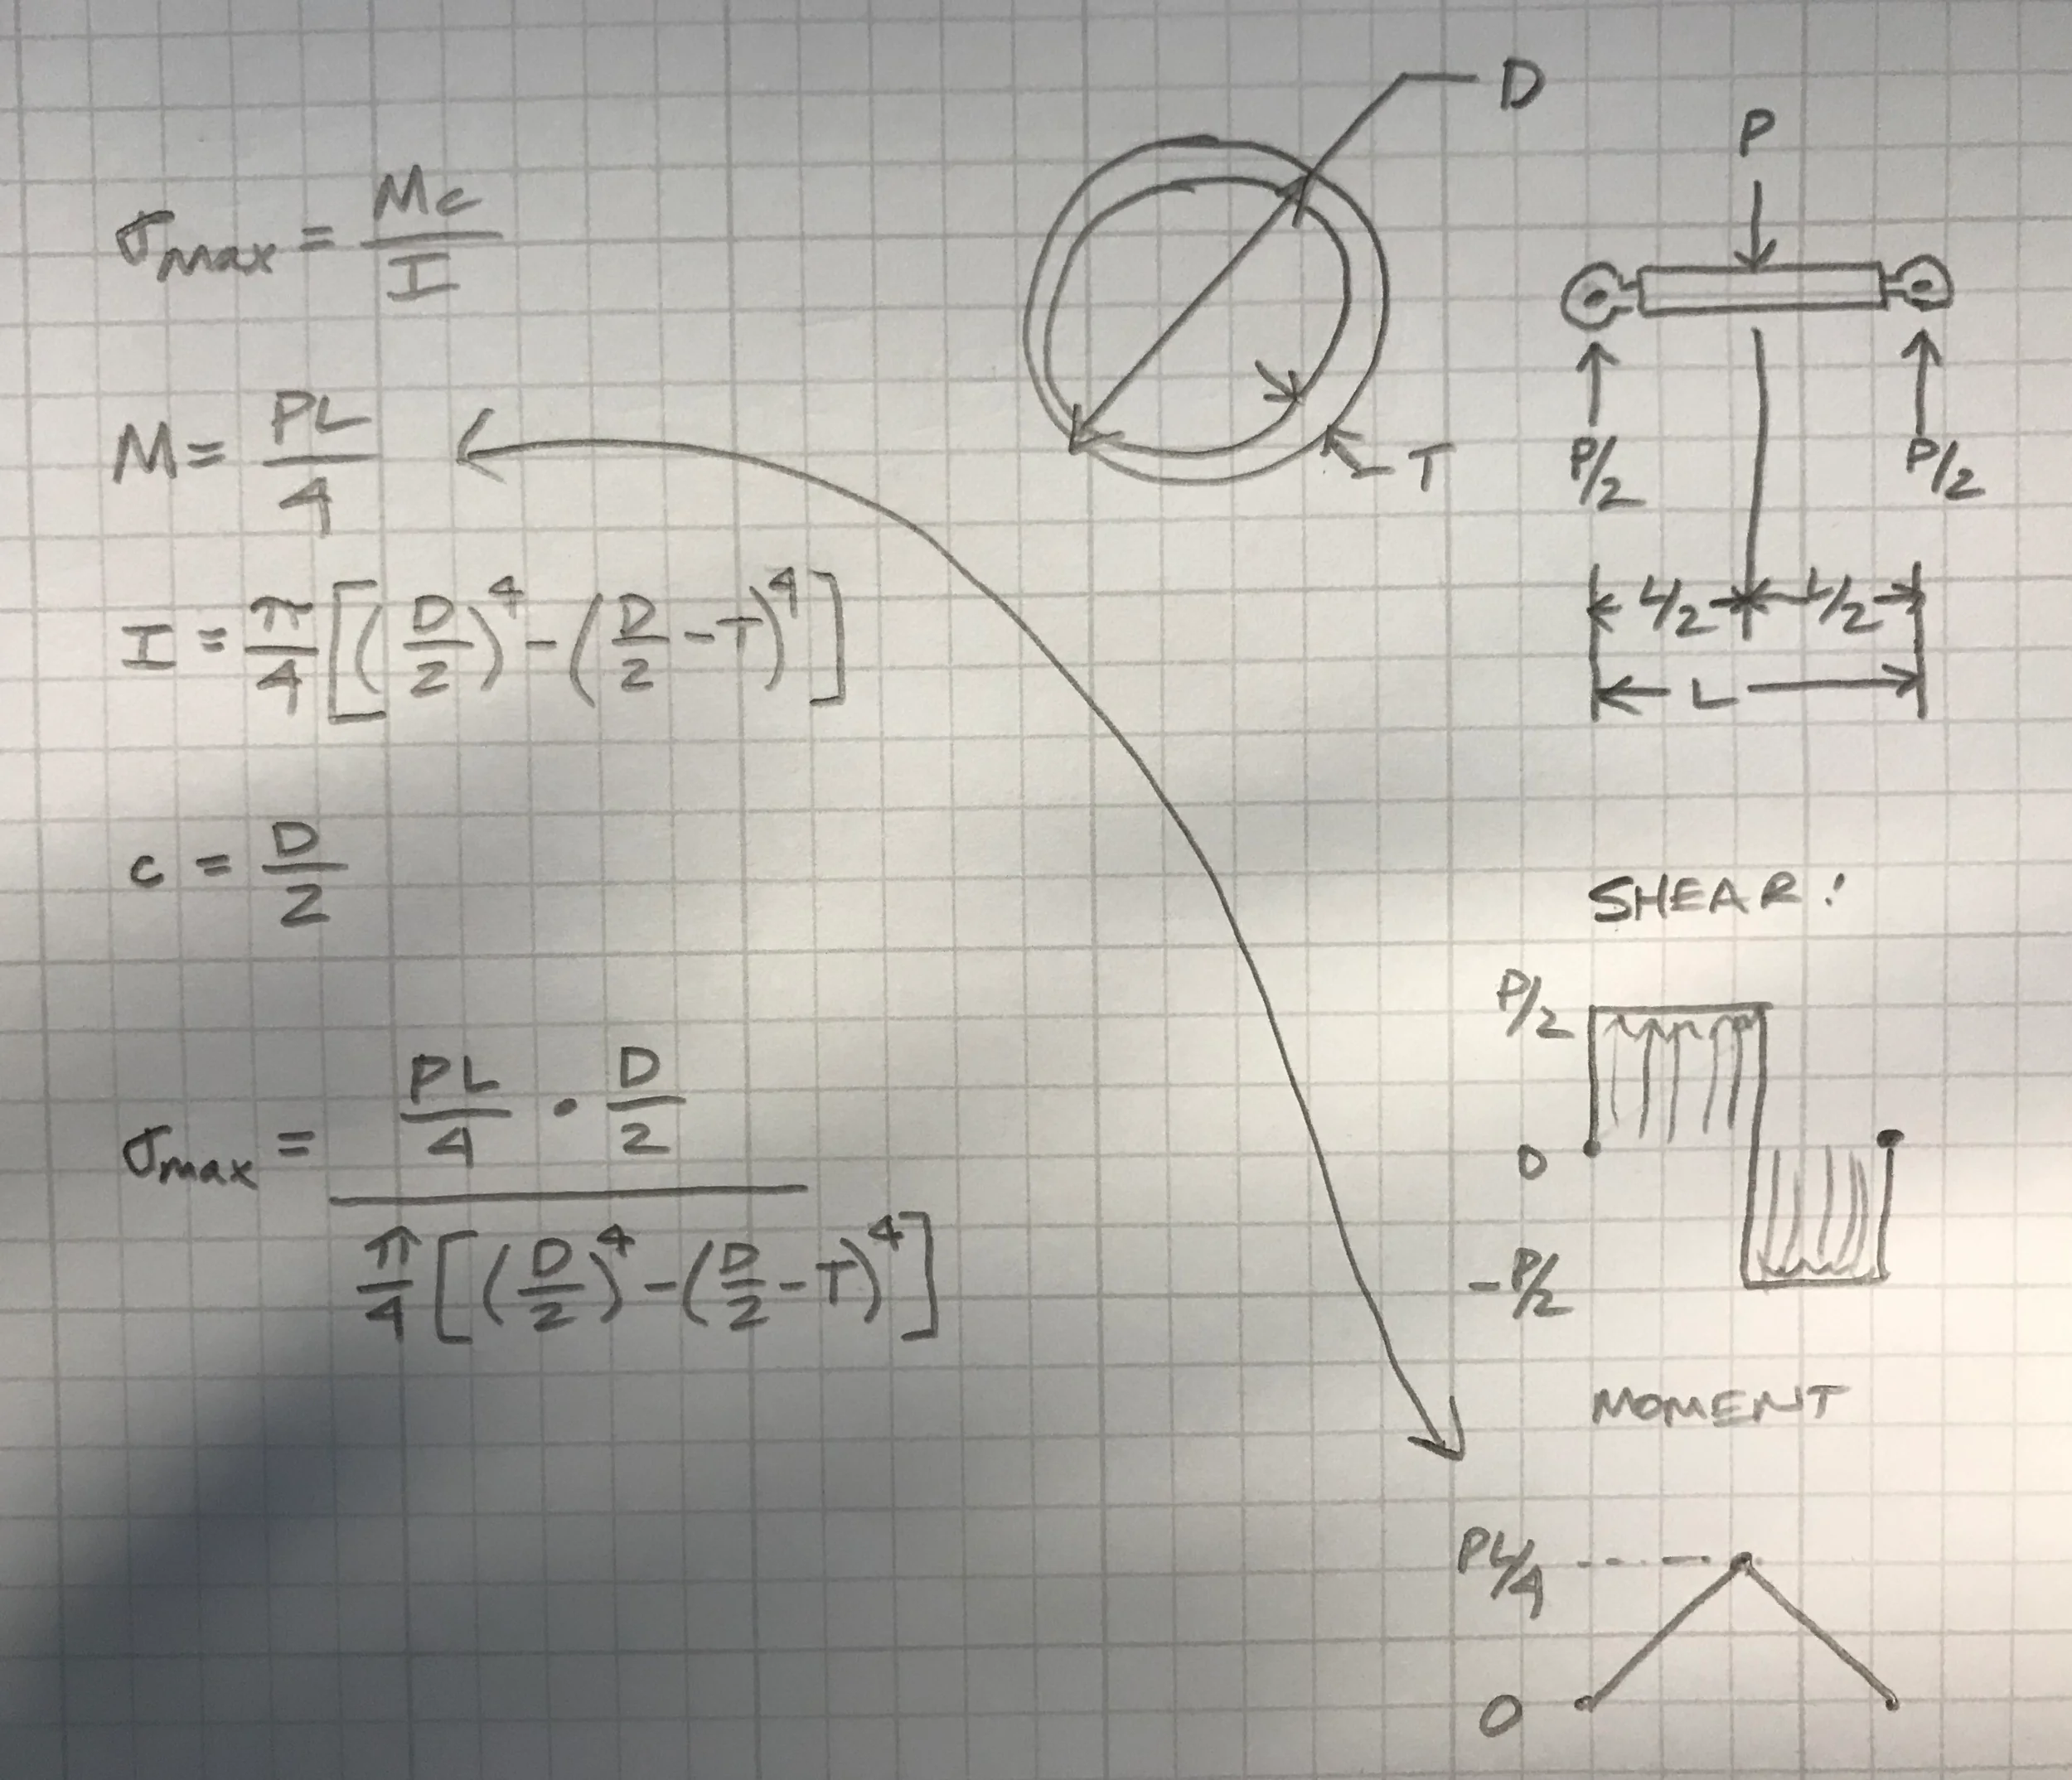 σmax = Mc/I
M = PL/4
I = π/4 [(D/2)^4 - (D/2 - T)^4]
c = D/2
σmax = (PL/4 · D/2) / (π/4 [(D/2)^4 - (D/2 - T)^4])
D
T
P
P/2 P/2
L/2 L/2
L
SHEAR:
P/2
0
-P/2
MOMENT
PL/4
0